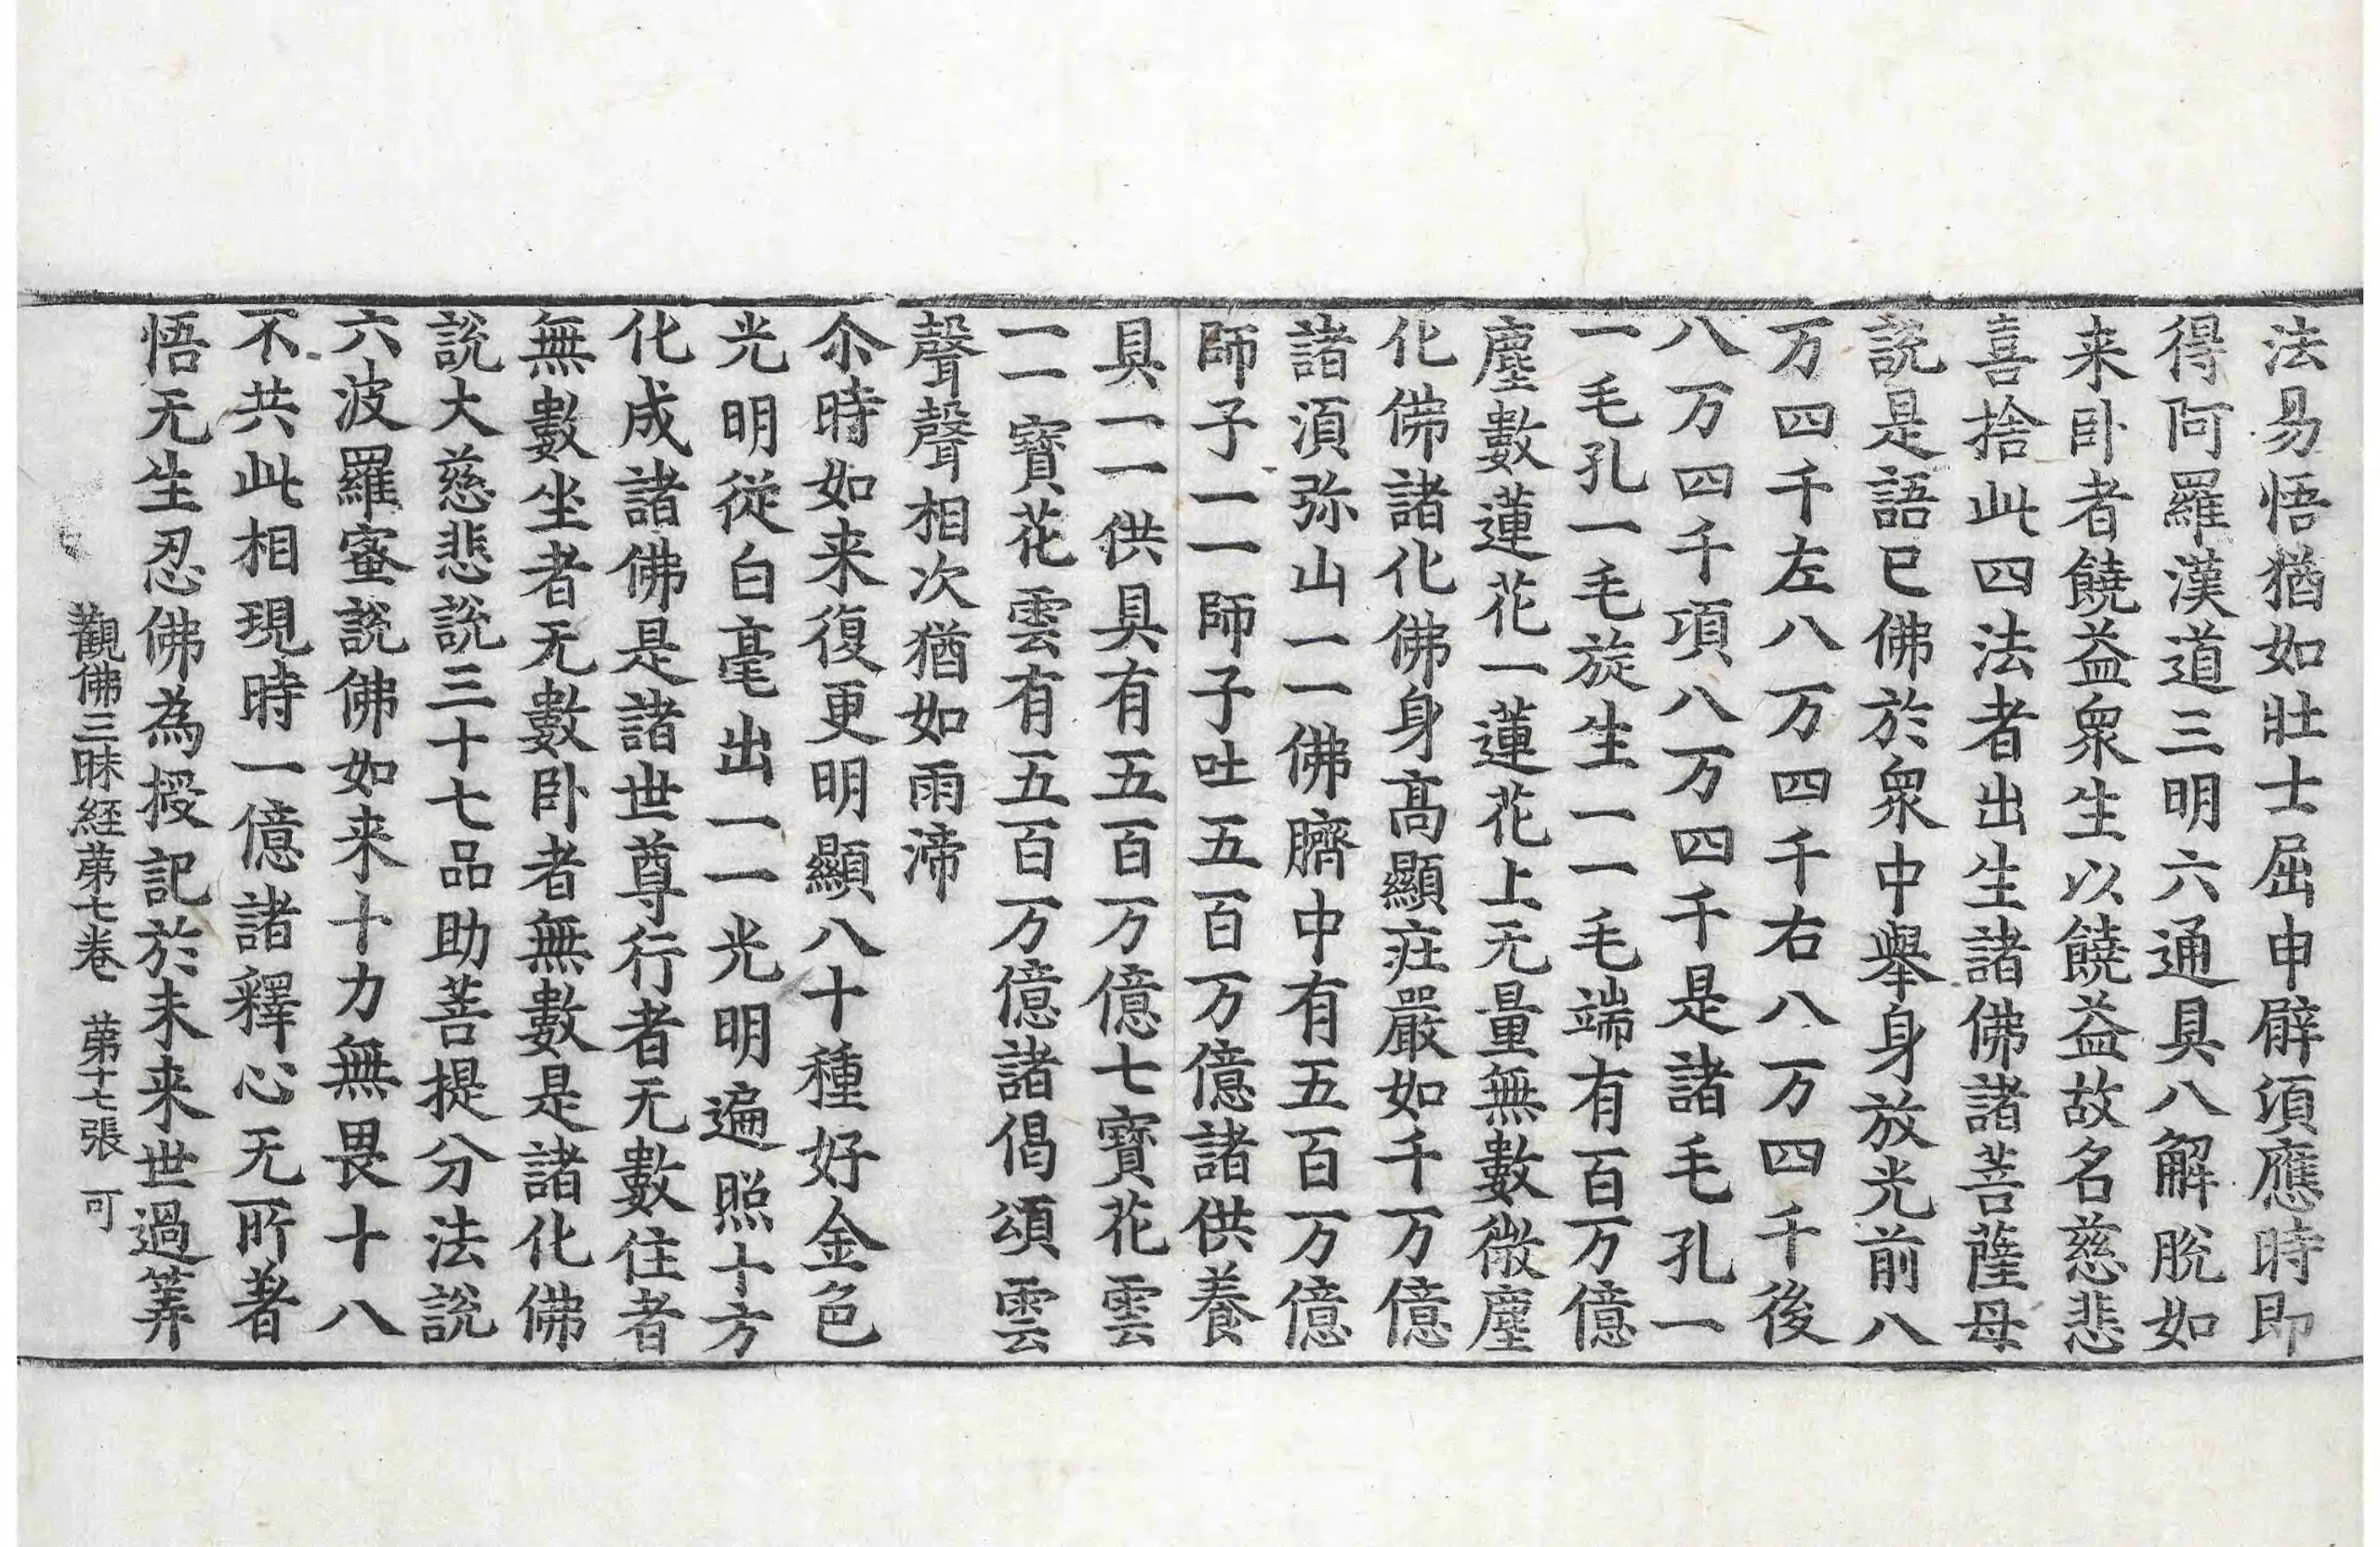 法易悟猶如壯士屈申臂須應時即
得阿羅漢道三明六通具八解脫如
来卧者饒益衆生以饒益故名慈悲
喜捨此四法者出生諸佛諸菩薩母
說是語已佛於衆中舉身放光前八
万四千左八万四千右八万四千後
八万四千項八万四千是諸毛孔一
一毛孔一毛旋生一一毛端有百万億
塵數蓮花一蓮花上无量無數微塵
化佛諸化佛身高顯疘嚴如千万億
諸湏弥山一一佛臍中有五百万億
師子一一師子吐五百万億諸供養
具一一供具有五百万億七寶花雲
一一寶花雲有五百万億諸偈頌雲
聲聲相次猶如雨渧
尒時如来復更明顯八十種好金色
光明從白毫出一一光明遍照十方
化成諸佛是諸世尊行者无數住者
無數坐者无數卧者無數是諸化佛
說大慈悲說三十七品助菩提分法說
六波羅蜜說佛如来十力無畏十八
不共此相現時一億諸釋心无所著
悟无生忍佛為授記於未来世過筭
觀佛三昧経苐七卷 苐十七張 可